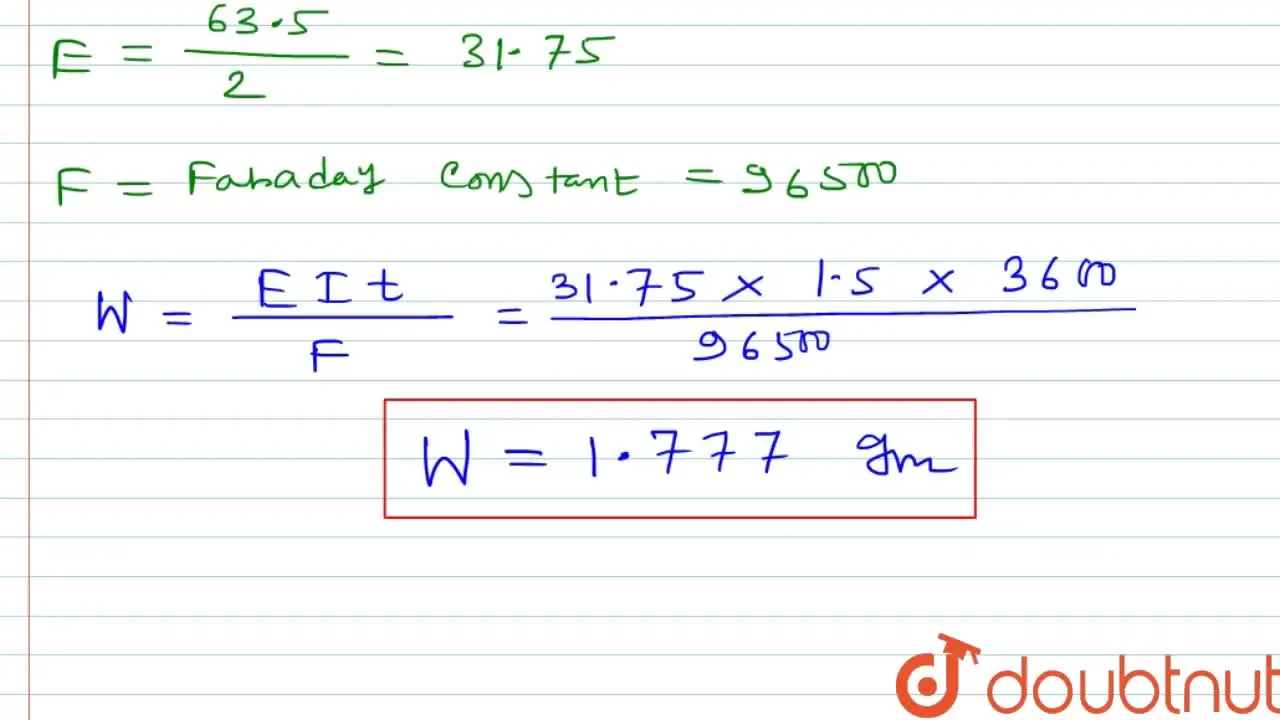 E = 63.5 / 2 = 31.75
F = Faraday Constant = 96500
W = E I t / F = 31.75 × 1.5 × 3600 / 96500
W = 1.777 gm
doubtnut